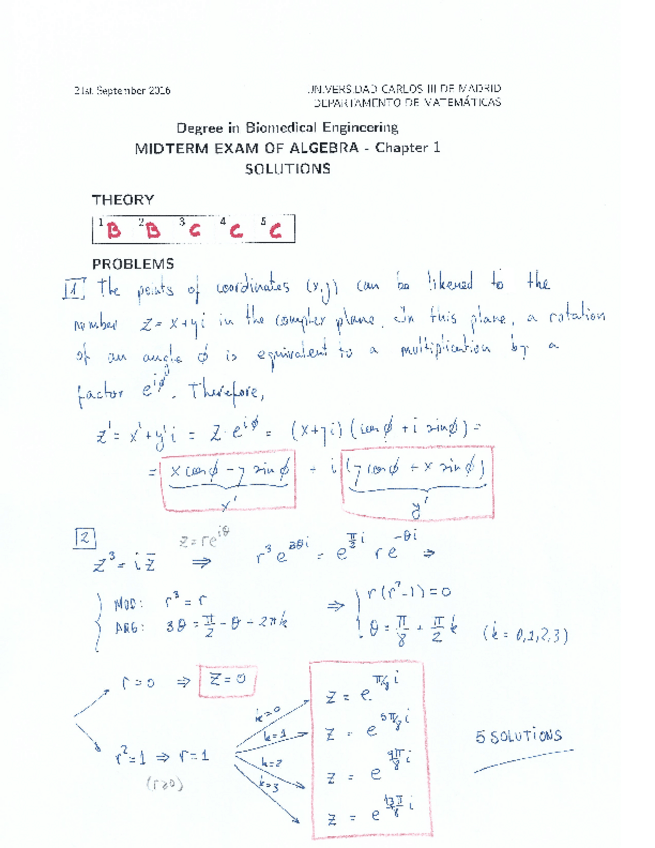 21st September 2016
UNIVERSIDAD CARLOS III DE MADRID
DEPARTAMENTO DE MATEMÁTICAS
Degree in Biomedical Engineering
MIDTERM EXAM OF ALGEBRA - Chapter 1
SOLUTIONS
THEORY
1 B 2 B 3 C 4 C 5 C
PROBLEMS
1 The points of coordinates (x,y) can be likened to the
number z = x+yi in the complex plane. In this plane, a rotation
of an angle ϕ is equivalent to a multiplication by a
factor e^{iϕ}. Therefore,
z' = x'+y'i = z·e^{iϕ} = (x+yi)(cosϕ + i sinϕ) =
= x cosϕ - y sinϕ + i (y cosϕ + x sinϕ)
x' y'
2 z = re^{iθ}
z³ = i z̄ ⇒ r³ e^{3θi} = e^{π/2 i} r e^{-θi} ⇒
MOD: r³ = r ⇒ r(r²-1) = 0
ARG: 3θ = π/2 - θ - 2πk θ = π/8 + π/2 k (k = 0,1,2,3)
r = 0 ⇒ z = 0
r² = 1 ⇒ r = 1
(r≥0)
k=0 z = e^{π/8 i}
k=1 z = e^{5π/8 i}
k=2 z = e^{9π/8 i}
k=3 z = e^{13π/8 i}
5 SOLUTIONS